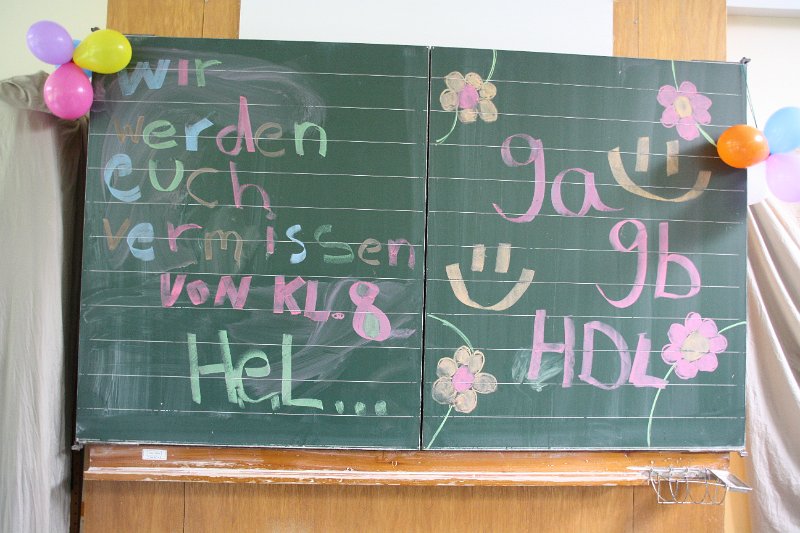 Wir
werden
euch
vermissen
VON KL. 8
HeL...
9a
9b
HDL